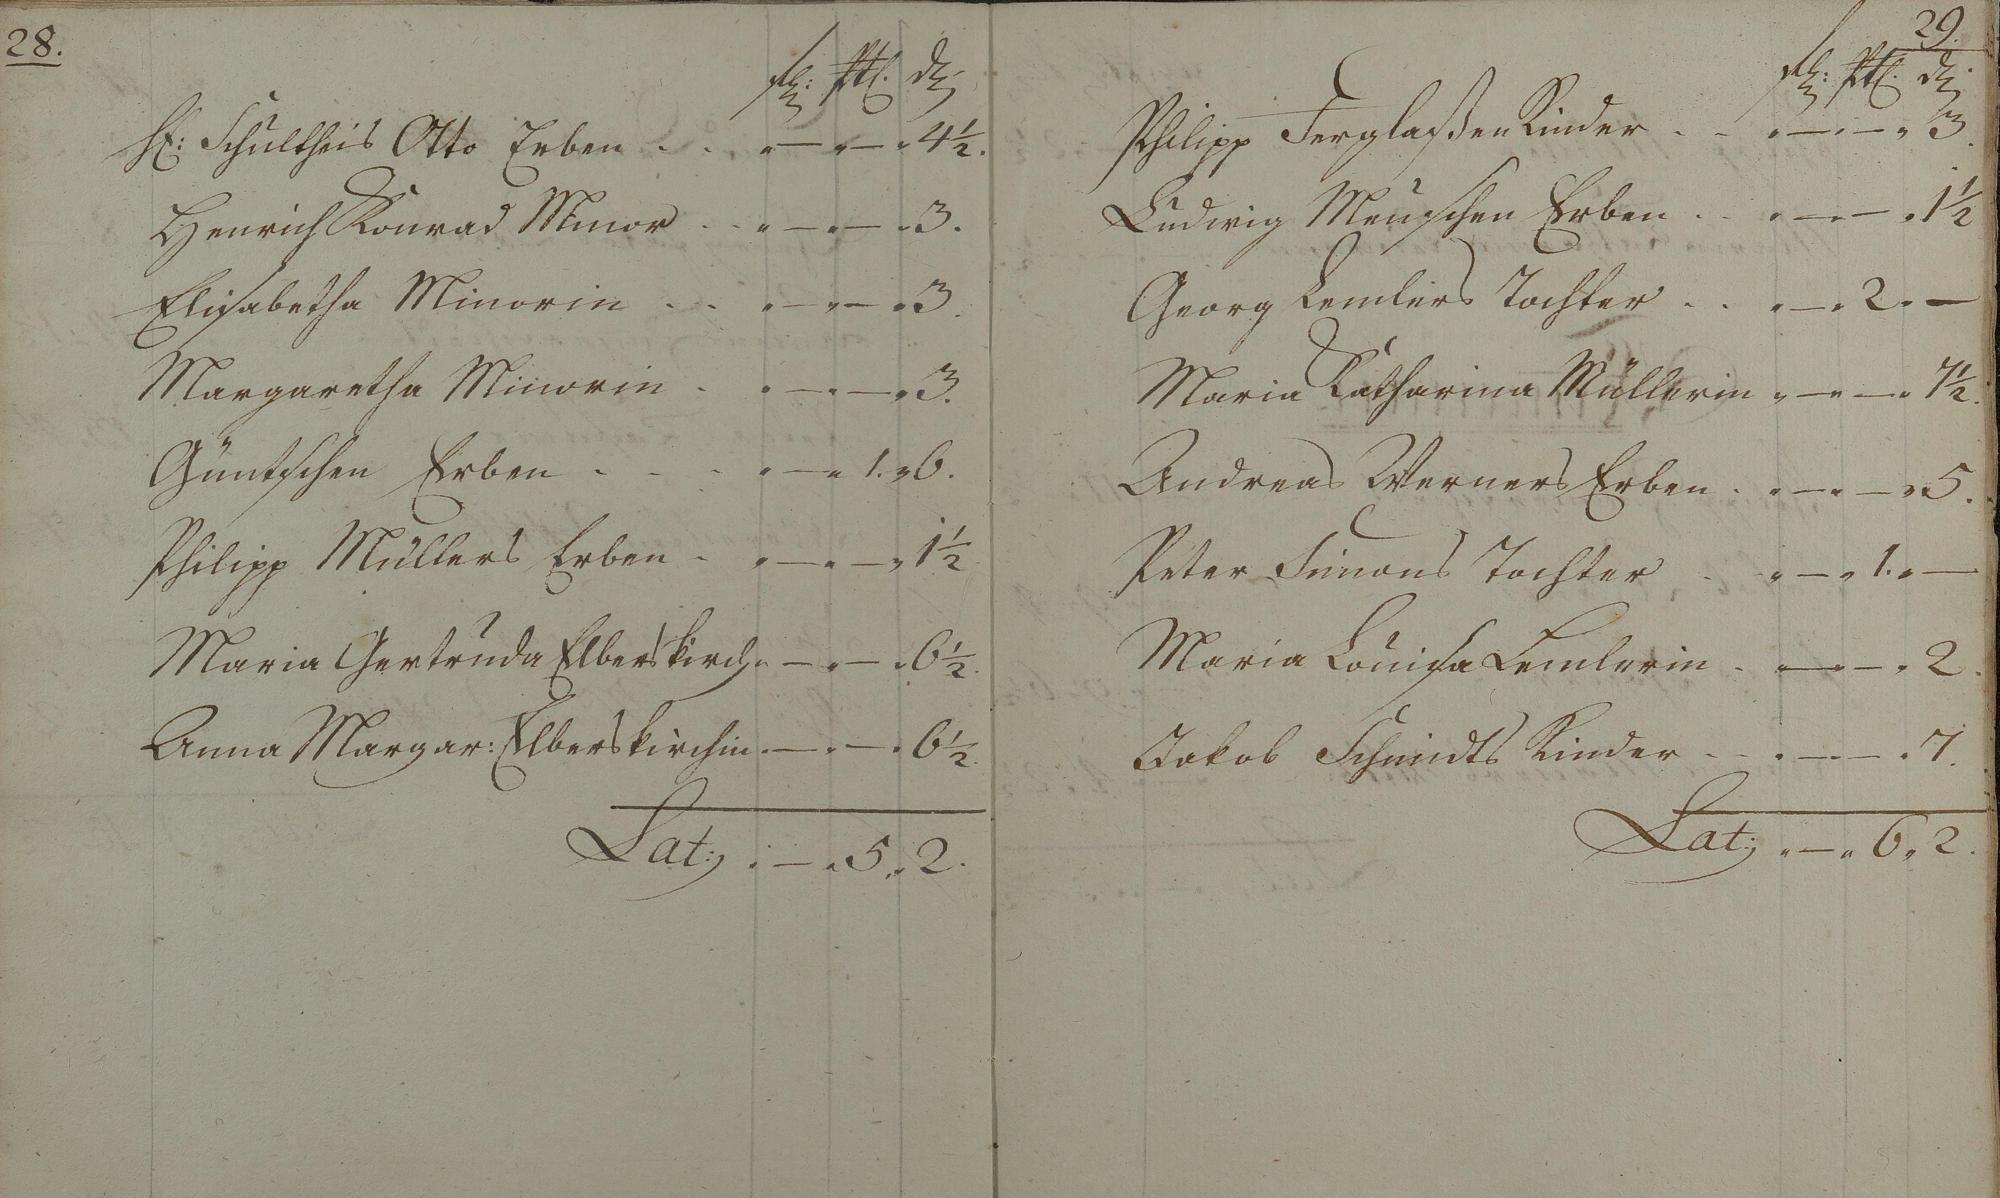 28.
fl: ₰
H: Schultheis Otto Erben . . „ — „ — „ 4½.
Henrich Konrad Minor . . „ — „ — „ 3.
Elisabetha Minorin . . „ — „ — „ 3.
Margaretha Minorin . „ — „ — „ 3.
Güntschen Erben . . . „ — „ 1. „ 6.
Philipp Müllers Erben . „ — „ — „ 1½
Maria Gertruda Elberskirch „ — „ — „ 6½.
Anna Margar: Elberskirchin „ — „ — „ 6½.
Lat: „ — „ 5 „ 2.
29.
fl: ₰
Philipp Kinder . . „ — „ — „ 3.
Ludwig Meuschen Erben . . „ — „ — „ 1½
Georg Lemlers Tochter . . „ — „ 2 „ —
Maria Katharina Müllerin „ — „ — „ 7½.
Andreas Werners Erben . „ — „ — „ 5.
Peter Simons Tochter . „ — „ 1. „ —
Maria Louisa Lemlerin . „ — „ — „ 2.
Jakob Schmidts Kinder . . „ — „ — „ 7.
Lat: „ — „ 6 „ 2.